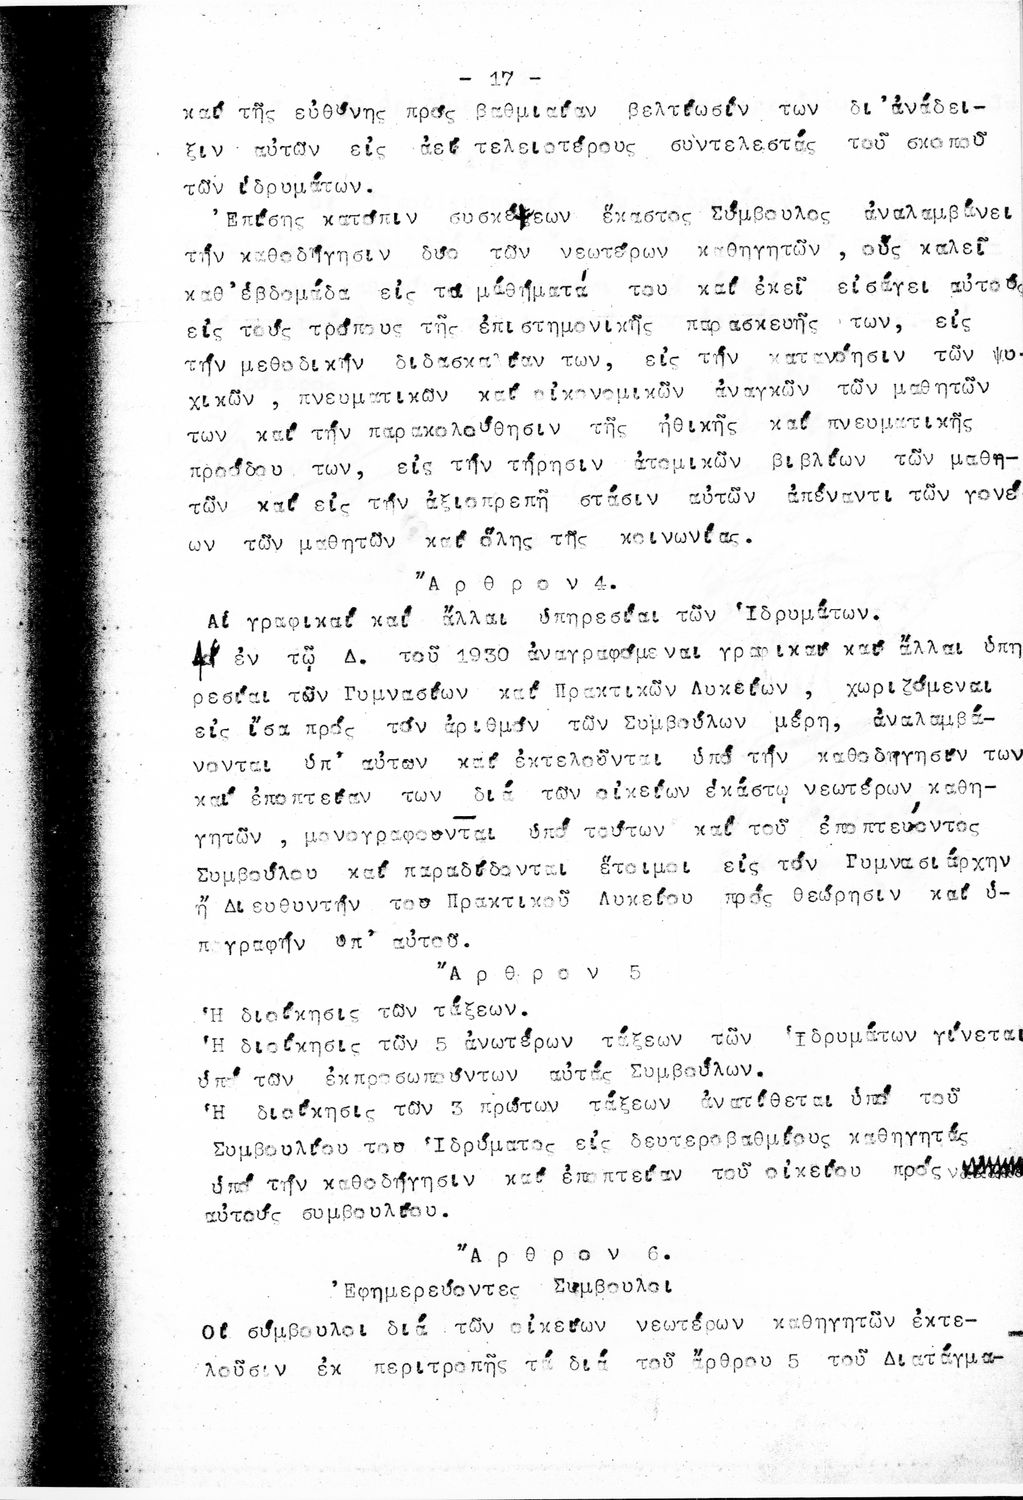 - 17 -
καί τῆς εὐθύνης πρός βαθμιαίαν βελτίωσίν των δι'ἀνάδει-
ξιν αὐτῶν εἰς ἀεί τελειοτέρους συντελεστάς τοῦ σκοποῦ
τῶν ἱδρυμάτων.
'Επίσης κατόπιν συσκέψεων ἕκαστος Σύμβουλος ἀναλαμβάνει
τήν καθοδήγησιν δυο τῶν νεωτέρων καθηγητῶν , οὕς καλεῖ
καθ'ἑβδομάδα εἰς τα μάθήματά του καί ἐκεῖ εἰσάγει αὐτούς
εἰς τούς τρόπους τῆς ἐπιστημονικῆς παρασκευῆς των, εἰς
τήν μεθοδικήν διδασκαλίαν των, εἰς τήν κατανόησιν τῶν ψυ-
χικῶν , πνευματικῶν καί οἰκονομικῶν ἀναγκῶν τῶν μαθητῶν
των καί τήν παρακολούθησιν τῆς ἠθικῆς καί πνευματικῆς
προόδου των, εἰς τήν τήρησιν ἀτομικῶν βιβλίων τῶν μαθη-
τῶν καί εἰς τήν ἀξιοπρεπῆ στάσιν αὐτῶν ἀπέναντι τῶν γονέ
ων τῶν μαθητῶν καί ὅλης τῆς κοινωνίας.
"Α ρ θ ρ ο ν 4.
Αἱ γραφικαί καί ἄλλαι ὑπηρεσίαι τῶν Ἱδρυμάτων.
Αἱ ἐν τῷ Δ. τοῦ 1930 ἀναγραφόμεναι γραφικαί καί ἄλλαι ὑπη
ρεσίαι τῶν Γυμνασίων καί Πρακτικῶν Λυκείων , χωριζόμεναι
εἰς ἴσα πρός τόν ἀριθμόν τῶν Συμβούλων μέρη, ἀναλαμβά-
νονται ὑπ' αὐτων καί ἐκτελοῦνται ὑπό τήν καθοδήγησίν των
καί ἐποπτείαν των διά τῶν οἰκείων ἑκάστῳ νεωτέρων καθη-
γητῶν , μονογραφουνται ὑπό τούτων καί τοῦ ἐποπτεύοντος
Συμβούλου καί παραδίδονται ἕτοιμοι εἰς τόν Γυμνασιάρχην
ἤ Διευθυντήν του Πρακτικοῦ Λυκείου πρός θεώρησιν καί ὑ-
πογραφήν ὑπ' αὐτοῦ.
"Α ρ θ ρ ο ν 5
Ἡ διοίκησις τῶν τάξεων.
Ἡ διοίκησις τῶν 5 ἀνωτέρων τάξεων τῶν Ἱδρυμάτων γίνεται
ὑπό τῶν ἐκπροσωπούντων αὐτάς Συμβούλων.
Ἡ διοίκησις τῶν 3 πρώτων τάξεων ἀνατίθεται ὑπό τοῦ
Συμβουλίου του Ἱδρύματος εἰς δευτεροβαθμίους καθηγητάς
ὑπό τήν καθοδήγησιν καί ἐποπτείαν τοῦ οἰκείου πρός
αὐτούς συμβουλίου.
"Α ρ θ ρ ο ν 6.
'Εφημερεύοντες Σύμβουλοι
Οἱ σύμβουλοι διά τῶν οἰκείων νεωτέρων καθηγητῶν ἐκτε-
λοῦσιν ἐκ περιτροπῆς τά διά τοῦ ἄρθρου 5 τοῦ Διατάγμα-